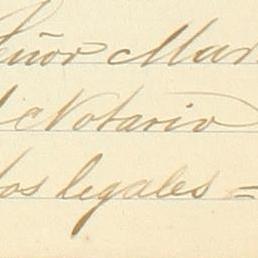 eñor Mar
l Notario
tos legales =